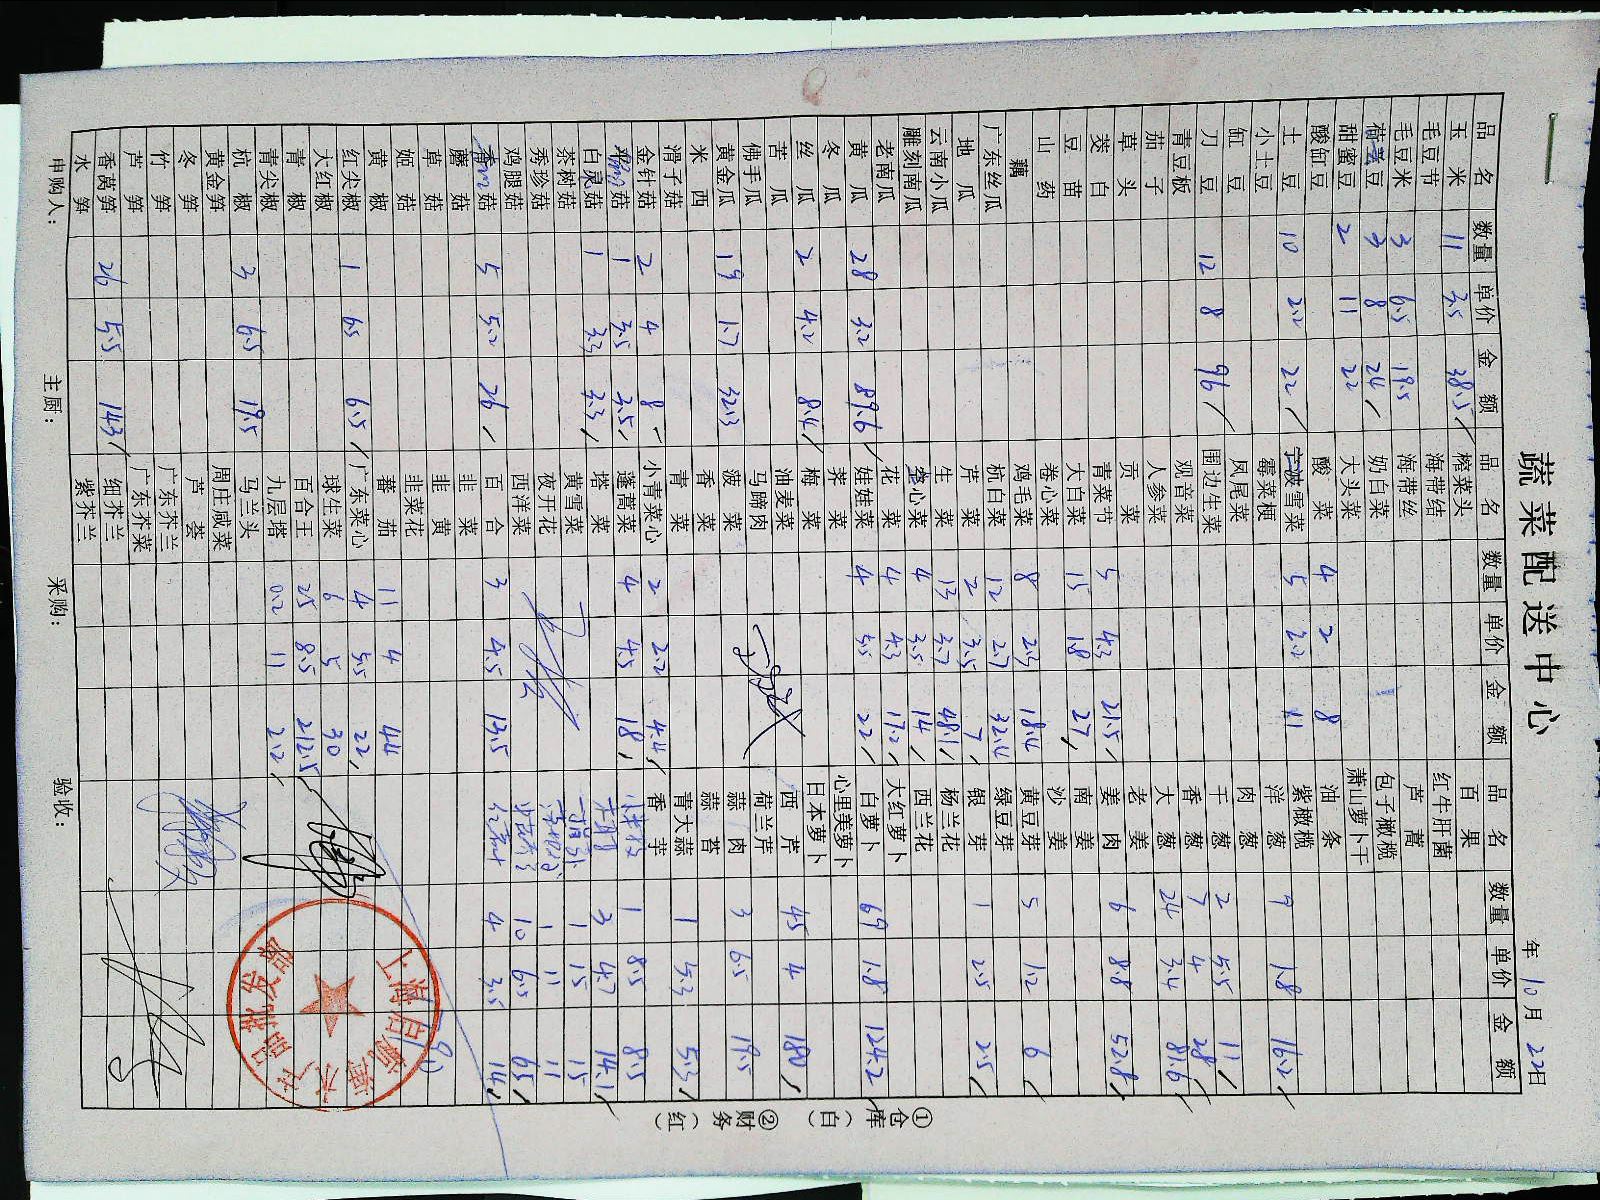 蔬菜配送中心
年 10月 22日
品名 数量 单价 金额 品名 数量 单价 金额 品名 数量 单价 金额
玉米 11 3.5 38.5 榨菜头 百果
毛豆节 海带结 红牛肝菌
毛豆米 3 6.5 19.5 海带丝 芦蒿
荷兰豆 3 8 24 奶白菜 包子橄榄
甜蜜豆 2 11 22 大头菜 萧山萝卜干
酸缸豆 酸菜 4 2 8 油条
土豆 10 2.2 22 宁波雪菜 5 2.2 11 紫橄榄
小土豆 霉菜梗 洋葱 9 1.8 16.2
缸豆 凤尾菜 肉葱
刀豆 12 8 96 围边生菜 干葱 2 5.5 11
青豆板 观音菜 香葱 7 4 28
茄子 人参菜 大葱 24 3.4 81.6
草头 贡菜 老姜
茭白 青菜节 5 4.3 21.5 姜肉 6 8.8 52.8
豆苗 大白菜 15 1.8 27 南姜
山药 卷心菜 沙姜
藕 鸡毛菜 8 2.3 18.4 黄豆芽 5 1.2 6
广东丝瓜 杭白菜 12 2.7 32.4 绿豆芽
地瓜 芹菜 2 3.5 7 银芽 1 2.5 2.5
云南小瓜 生菜 13 3.7 48.1 杨兰花
雕刻南瓜 空心菜 4 3.5 14 西兰花
老南瓜 花菜 4 4.3 17.2 大红萝卜
黄瓜 28 3.2 89.6 娃娃菜 4 5.5 22 白萝卜 69 1.8 124.2
冬瓜 荠菜 心里美萝卜
丝瓜 2 4.2 8.4 梅菜 日本萝卜
苦瓜 油麦菜 西芹 45 4 180
佛手瓜 马蹄肉 荷兰芹
黄金瓜 19 1.7 32.3 菠菜 蒜肉 3 6.5 19.5
米西 香菜 蒜苔
滑子菇 青菜 青大蒜 1 5.3 5.3
金针菇 2 4 8 小青菜心 2 2.2 4.4 香芋
菇 1 3.5 3.5 蓬蒿菜 4 4.5 18 1 8.5 8.5
白灵菇 1 3.3 3.3 塔菜 3 4.7 14.1
茶树菇 黄雪菜 1 15 15
秀珍菇 夜开花 1 11 11
鸡腿菇 西洋菜 10 6.5 65
香菇 5 5.2 26 百合 3 4.5 13.5 4 3.5 14
蘑菇 韭菜
草菇 韭黄
姬菇 韭菜花
黄椒 蕃茄 11 4 44
红尖椒 1 6.5 6.5 广东菜心 4 5.5 22
大红椒 球生菜 6 5 30
青椒 百合王 25 8.5 212.5
青尖椒 九层塔 0.2 11 2.2
杭椒 3 6.5 19.5 马兰头
黄金笋 周庄咸菜
冬笋 芦荟
竹笋 广东芥兰
芦笋 广东芥菜
香莴笋 26 5.5 143 细芥兰
水笋 紫芥兰
申购人： 主厨： 采购： 验收：
①仓库（白） ②财务（红）